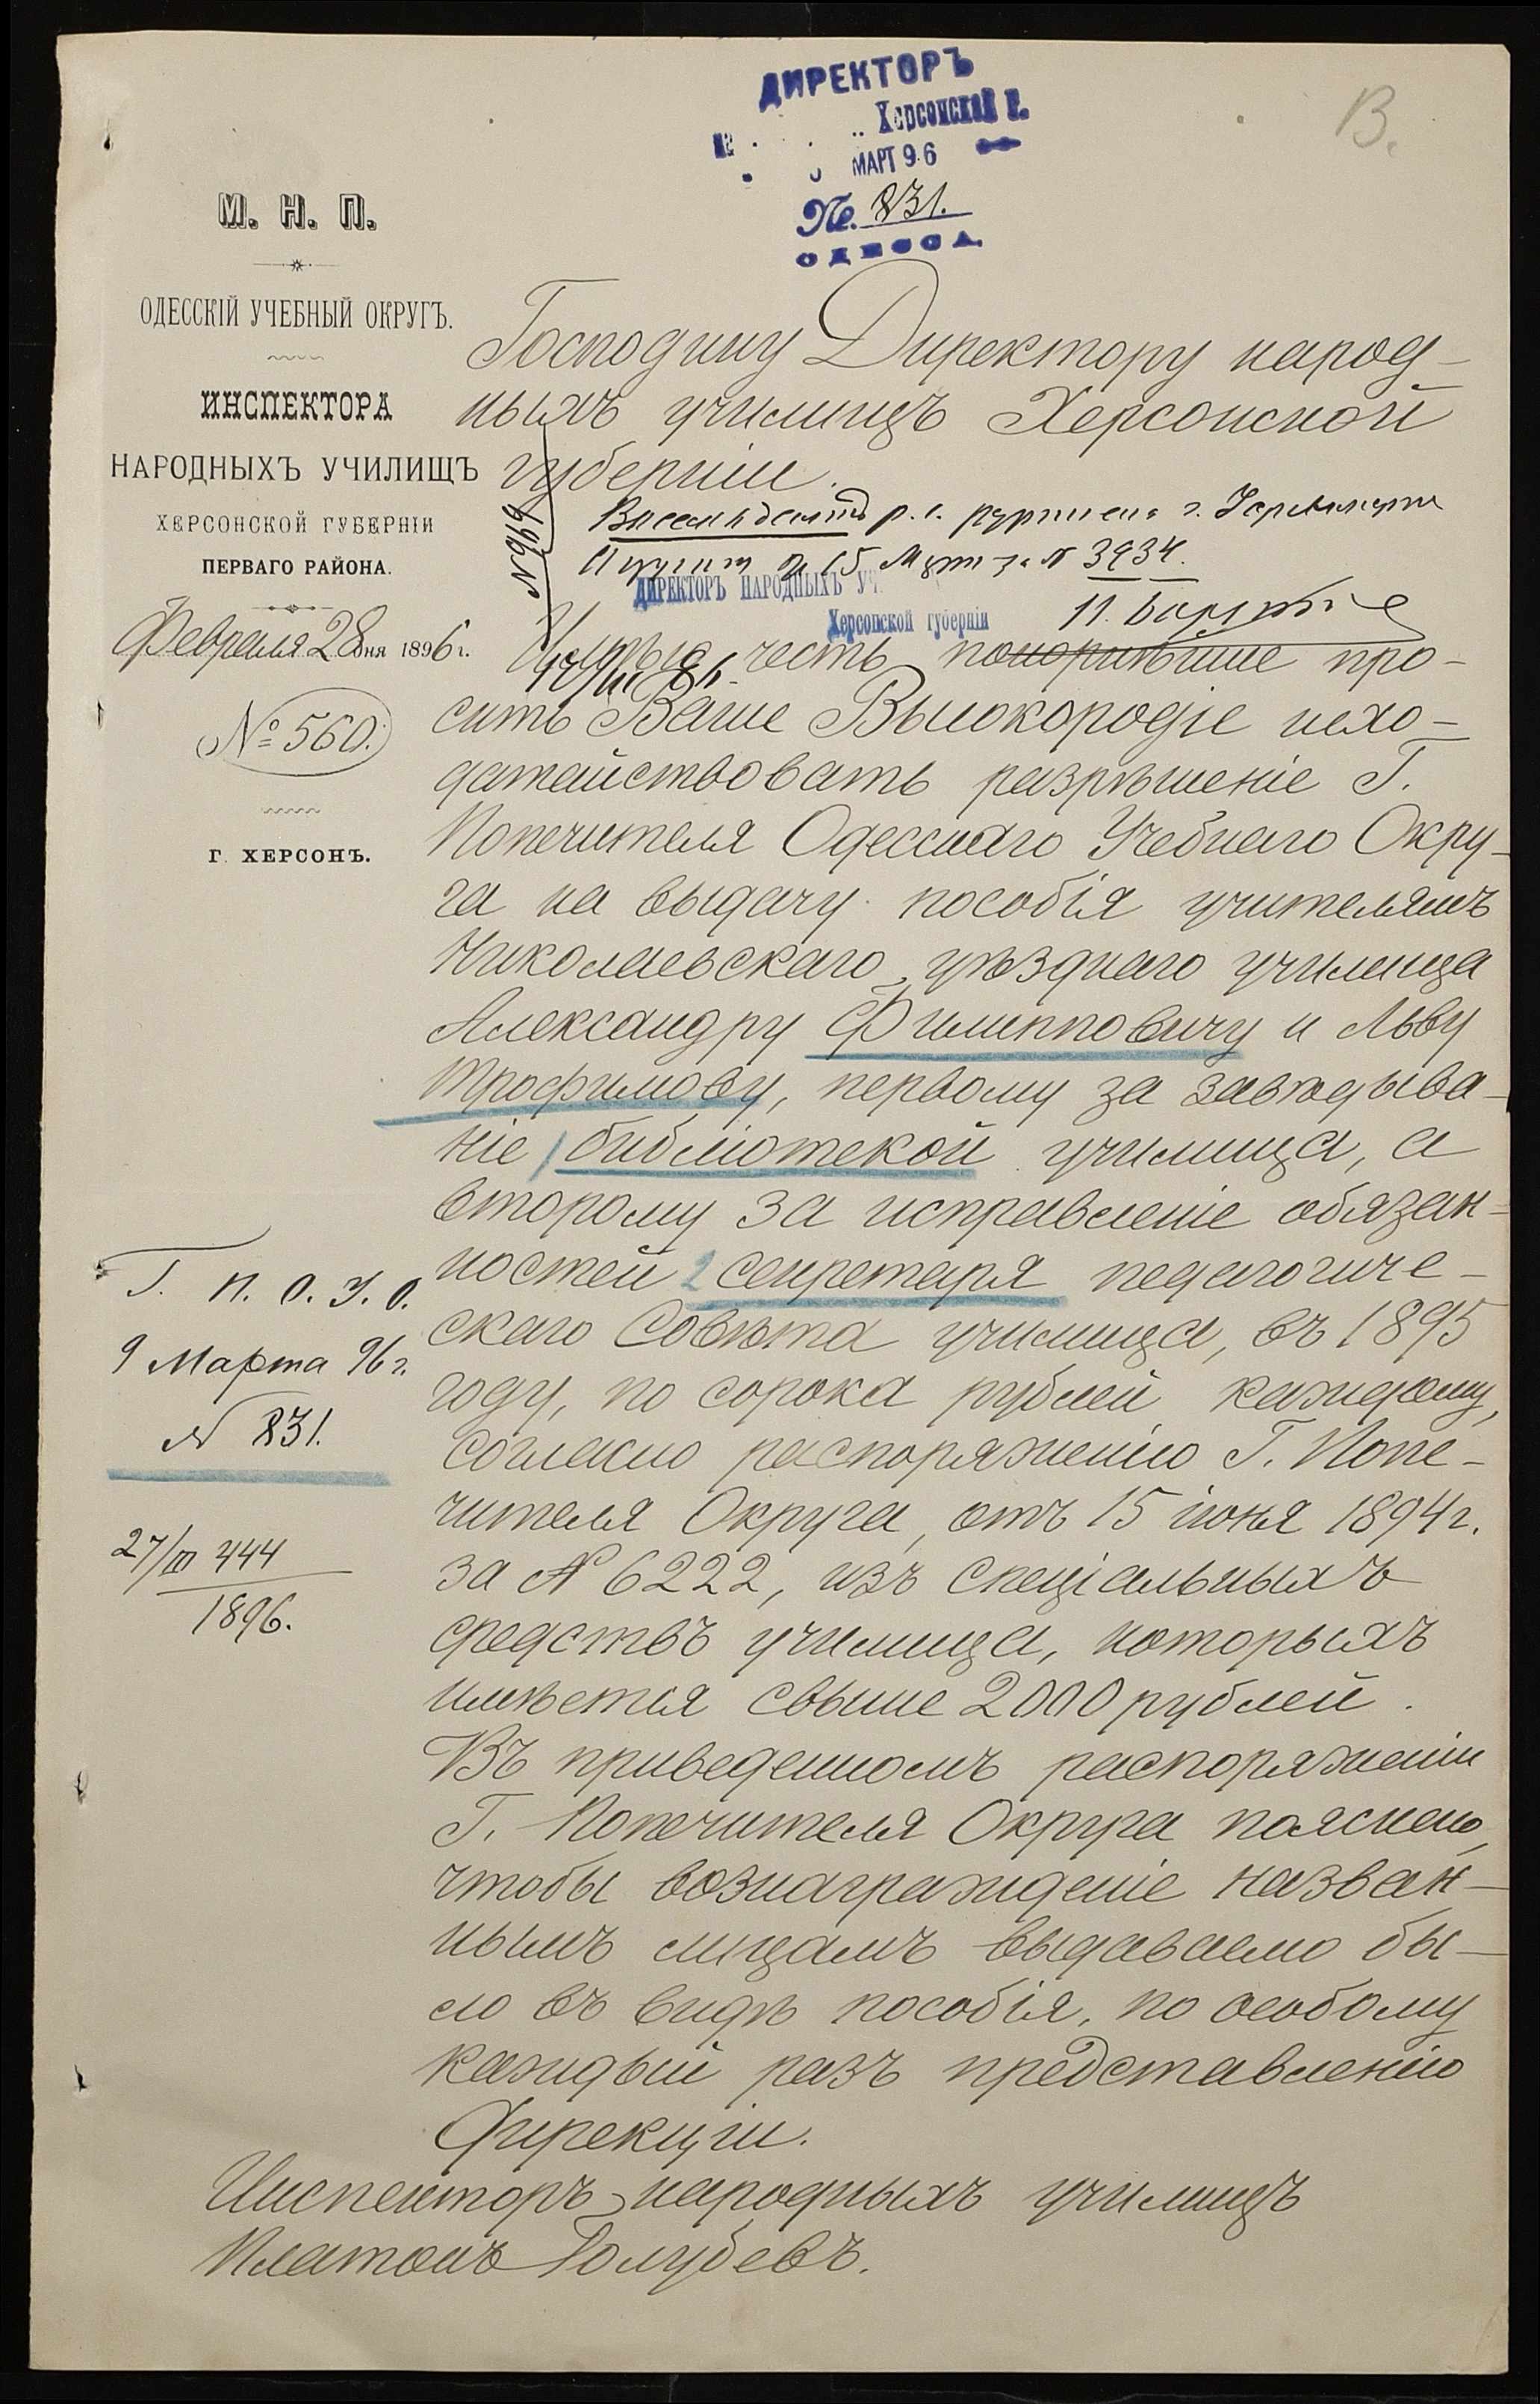 ДИРЕКТОРЪ
Херсонской г.
МАРТ 96
№ 831.
ОДЕССА.
В.
М. Н. П.
ОДЕССКІЙ УЧЕБНЫЙ ОКРУГЪ.
ИНСПЕКТОРА
НАРОДНЫХЪ УЧИЛИЩЪ
ХЕРСОНСКОЙ ГУБЕРНІИ
ПЕРВАГО РАЙОНА.
Февраля 28 дня 1896 г.
№ 560.
Г. ХЕРСОНЪ.
Господину Директору народ-
ныхъ училищъ Херсонской
губерніи.
№ 919
Восемьдесятъ р. с.
15 Март за № 3934.
ДИРЕКТОРЪ НАРОДНЫХЪ УЧ
Херсонской губерніи
Имѣю честь покорнѣйше про-
сить Ваше Высокородіе исхо-
датайствовать разрѣшеніе Г.
Попечителя Одесскаго Учебнаго Окру-
га на выдачу пособія учителямъ
Николаевскаго уѣзднаго училища
Александру Филипповичу и Льву
Трофимову, первому за завѣдыва-
ніе 1 библіотекой училища, а
второму за исправленіе обязан-
ностей 2 секретаря педагогиче-
скаго Совѣта училища, въ 1895
году, по сорока рублей каждому,
согласно распоряженію Г. Попе-
чителя Округа, отъ 15 іюня 1894 г.
за № 6222, изъ спеціальныхъ
средствъ училища, которыхъ
имѣется свыше 2000 рублей.
Въ приведенномъ распоряженіи
Г. Попечителя Округа пояснено,
чтобы вознагражденіе назван-
нымъ лицамъ выдаваемо бы-
ло въ видѣ пособія, по особому
каждый разъ представленію
Дирекціи.
Инспекторъ народныхъ училищъ
Платонъ Голубевъ.
Г. П. О. У. О.
9 Марта 96 г.
№ 831.
27/III 444
1896.